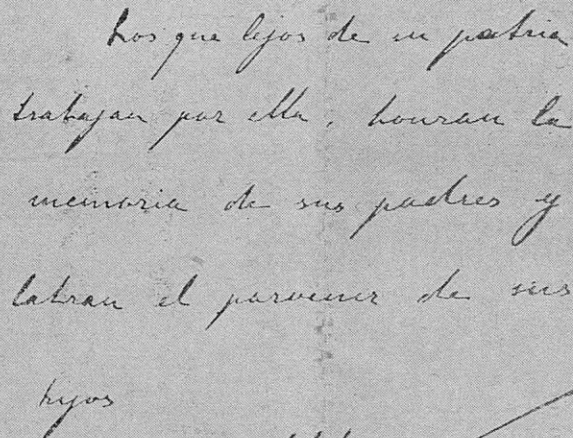 Los que lejos de su patria
trabajan por ella, honran la
memoria de sus padres y
labran el porvenir de sus
hijos